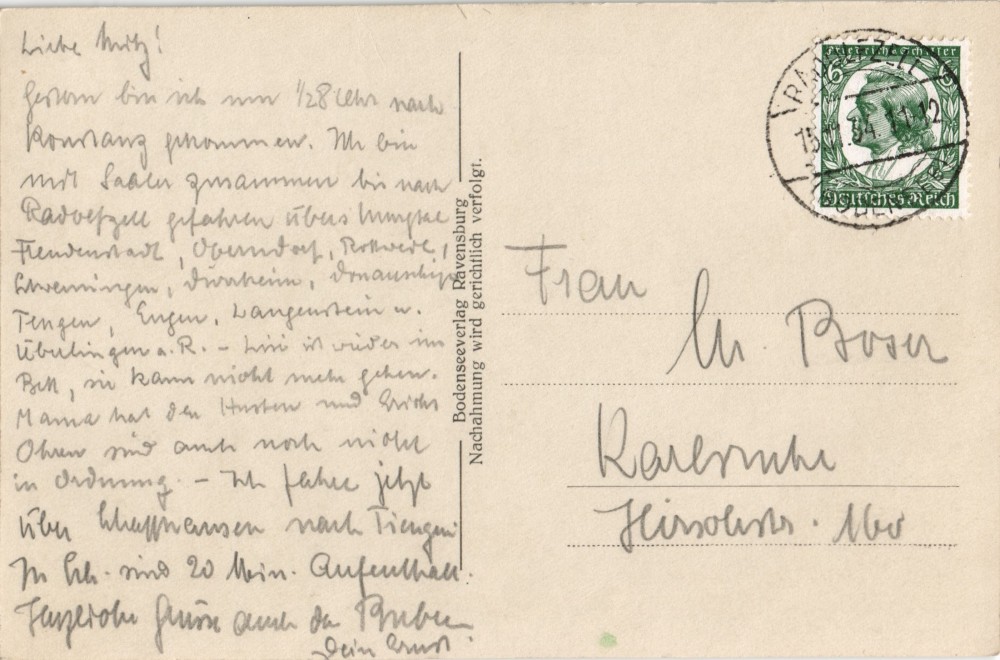 Liebe Mitz!
Gestern bin ich um 1/28 Uhr nach
Konstanz gekommen. Ich bin
mit Sattler zusammen bis nach
Radolfzell gefahren übers Murgtal
Freudenstadt, Oberndorf, Rottweil,
Schwenningen, Dürrheim, Donauesch
Tengen, Engen, Langenstein u.
Überlingen a. R. – Lisi ist wieder im
Bett, sie kann nicht mehr gehen.
Mama hat den Husten und Erichs
Ohren sind auch noch nicht
in Ordnung. – Ich fahre jetzt
über Schaffhausen nach Tiengen
In Sch. sind 20 Min. Aufenthalt.
Herzliche Grüsse auch den Buben
Dein Ernst
Bodenseeverlag Ravensburg
Nachahmung wird gerichtlich verfolgt.
Friedrich Schiller
6 6
Deutsches Reich
RADOLFZELL
15.11.34 11-12
Frau
M. Boser
Karlsruhe
Hirschstr. 160